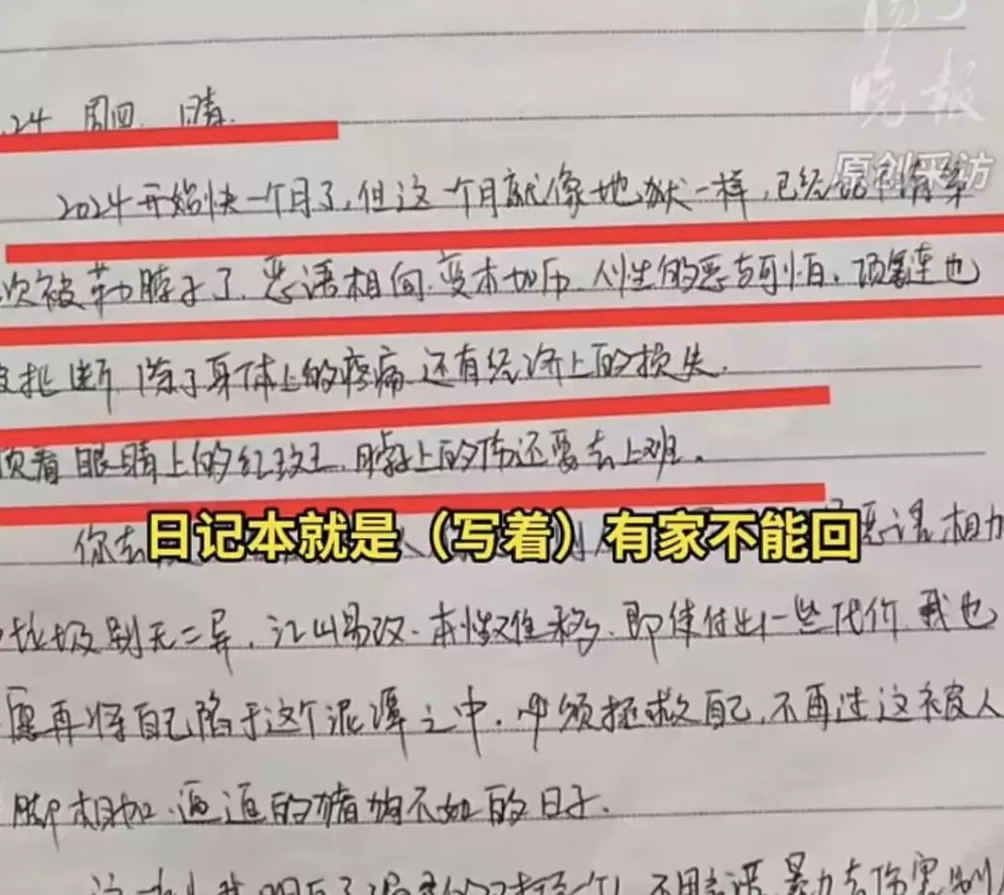 扬子
晚报
原创采访
.24 周四. 晴.
2024开始快一个月了，但这一个月就像地狱一样，已经
次被勒脖子了，恶语相向，变本加厉，人性的恶与可怕，项链连也
被扯断，除了身体上的疼痛，还有经济上的损失.
顶着眼睛上的红斑，脖子上的伤还要去上班。
你去 恶语相加
日记本就是（写着）有家不能回
垃圾别无二异，江山易改，本性难移，即使付出一些代价，我也
愿再将自己陷于这个泥潭之中，必须拯救自己，不再过这被人
脚相加、逼逼的猪狗不如的日子.
不用言语、暴力去伤害别